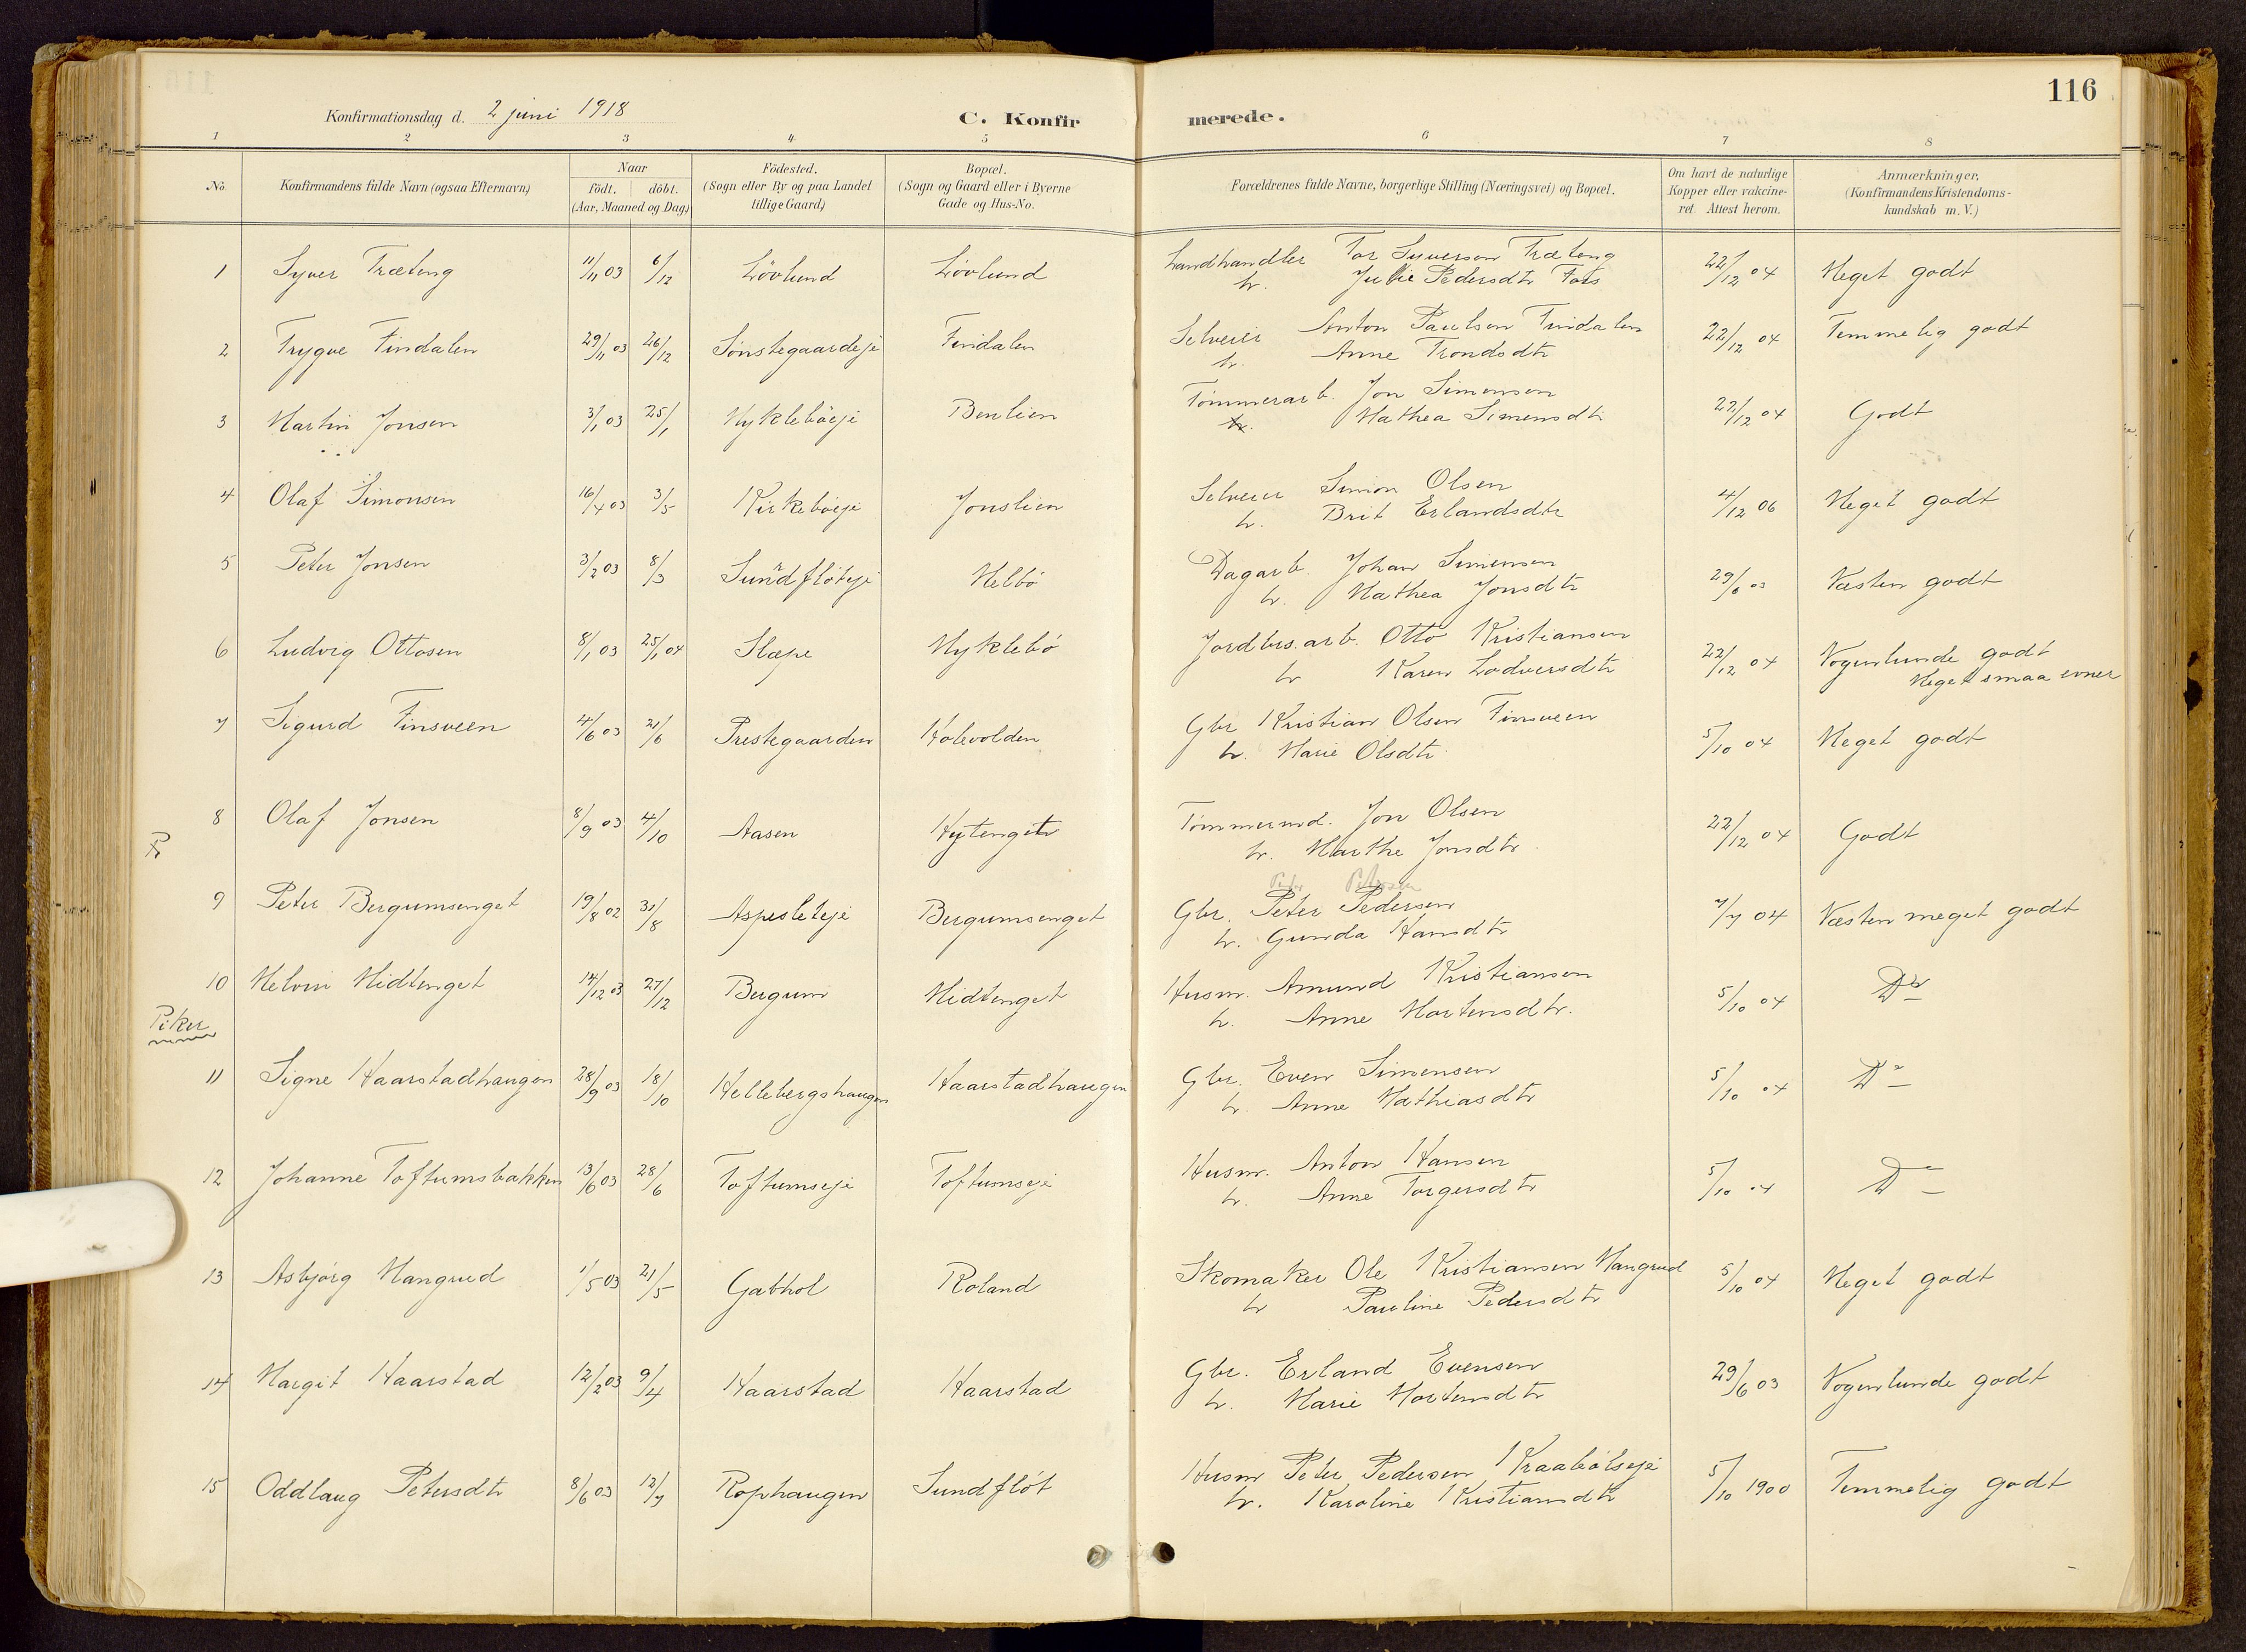 116
Konfirmationsdag d. 2 juni 1918
C. Konfirmerede.
1 2 3 4 5 6 7 8
No. Konfirmandens fulde Navn (ogsaa Efternavn) Naar födt. döbt. (Aar, Maaned og Dag) Födested. (Sogn eller By og paa Landet tillige Gaard) Bopæl. (Sogn og Gaard eller i Byerne Gade og Hus-No. Forældrenes fulde Navne, borgerlige Stilling (Næringsvei) og Bopæl. Om havt de naturlige Kopper eller vakcineret. Attest herom. Anmærkninger. (Konfirmandens Kristendomskundskab m. V.)
1 Syver Træteng 11/11 03 6/12 Lövlund Lövlund Landhandler Tor Syverson Træteng 22/12 04 Meget godt
h. Julie Pedersdtr Fors
2 Trygve Findalen 29/11 03 26/12 Sönstegaardeje Findalen Selveier Anton Paulsen Findalen 22/12 04 Temmelig godt
h. Anne Trondsdtr
3 Martin Jonsen 3/1 03 25/1 Mykleböeje Benlien Tömmerarb. Jon Simensen 22/12 04 Godt
h. Mathea Simensdtr
4 Olaf Simonsen 16/4 03 3/5 Kirkeböeje Jonslien Selveier Simon Olsen 4/12 06 Meget godt
h. Brit Erlandsdtr
5 Peter Jonsen 3/2 03 8/3 Sundflöteje Melbö Dagarb. Johan Simensen 29/6 03 Næsten godt
h. Mathea Jonsdtr
6 Ludvig Ottosen 8/1 03 25/1 04 Slæpe Myklebö Jordbrs.arb. Otto Kristiansen 22/12 04 Nogenlunde godt
h Karen Lodversdtr Meget smaa evner
7 Sigurd Finsveen 4/6 03 21/6 Prestegaarden Holevolden Gbr Kristian Olsen Finsveen 5/10 04 Meget godt
h. Marie Olsdtr
8 Olaf Jonsen 8/9 03 4/10 Aasen Nytenget Tömmermd. Jon Olsen 22/12 04 Godt
h. Marthe Jonsdtr
9 Peter Bergumsenget 19/8 02 31/8 Aspesleteje Bergumsenget Gbr. Peter Pedersen 7/7 04 Næsten meget godt
h. Gunda Hansdtr
10 Melvin Midtenget 14/12 03 27/12 Bergum Midtenget Husm. Amund Kristiansen 5/10 04 Do
h. Anne Mortensdtr.
Piker
11 Signe Haarstadhaugen 28/9 03 18/10 Hellebergshaugen Haarstadhaugen Gbr. Even Simensen 5/10 04 Do
h. Anne Mathiasdtr
12 Johanne Toftumsbakken 13/6 03 28/6 Toftumseje Toftumseje Husm. Anton Hansen 5/10 04 Do
h. Anne Torgersdtr
13 Asbjörg Mangrud 1/5 03 21/5 Gabhol Roland Skomaker Ole Kristiansen Mangrud 5/10 04 Meget godt
h Pauline Pedersdtr
14 Margit Haarstad 12/2 03 9/4 Haarstad Haarstad Gbr. Erland Evensen 29/6 03 Nogenlunde godt
h. Marie Mortensdtr
15 Oddlaug Petersdtr 8/6 03 12/7 Rophaugen Sundflöt Husm Peter Pedersen Kraabölseje 5/10 1900 Temmelig godt
h. Karoline Kristiansdtr